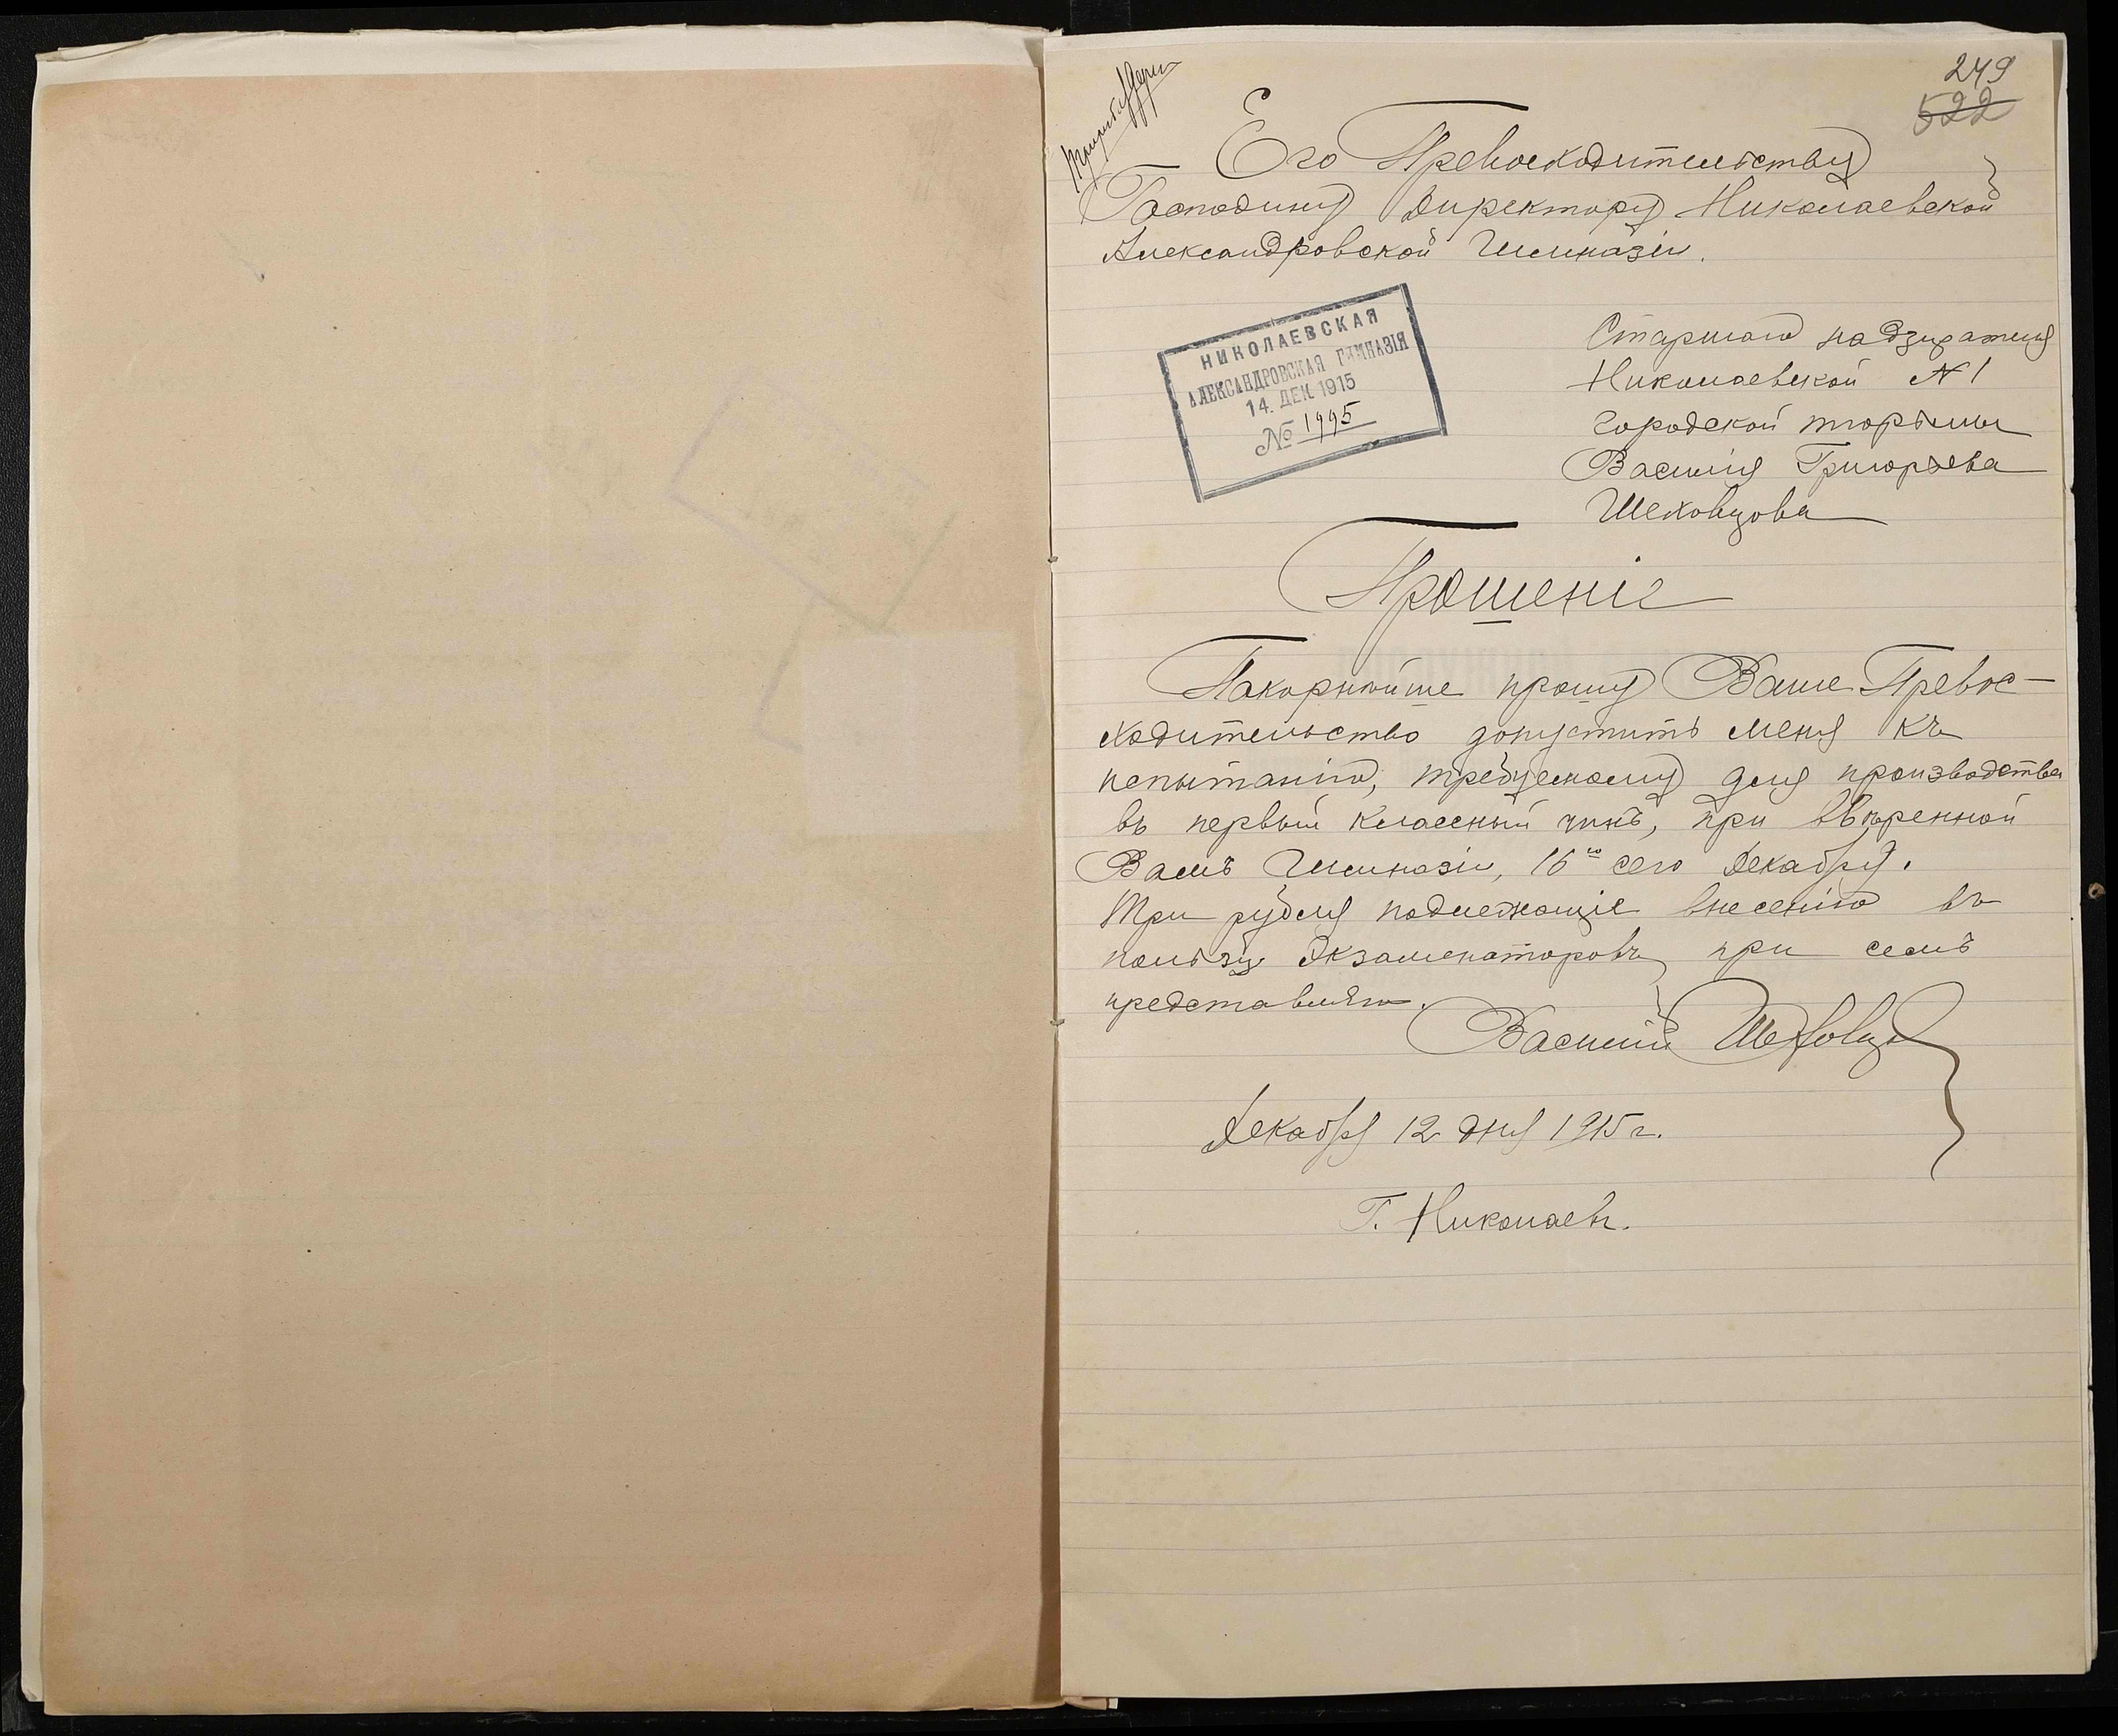 249
522
Его Превосходительству
Господину Директору Николаевской
Александровской Гимназіи.
НИКОЛАЕВСКАЯ
АЛЕКСАНДРОВСКАЯ ГИМНАЗІЯ
14. ДЕК. 1915
№ 1995
Старшаго надзирателя
Николаевской №1
городской тюрьмы
Василія Григорьева
Шеховцова
Прошеніе
Покорнѣйше прошу Ваше Превос-
ходительство допустить меня къ
испытанію, требуемому для производства
въ первый классный чинъ, при ввѣренной
Вамъ Гимназіи, 16го сего Декабря.
Три рубля подлежащіе внесенію въ
пользу Экзаменаторовъ при семъ
представляю.
Василій Шеховцо
Декабря 12 дня 1915 г.
Г. Николаевъ.